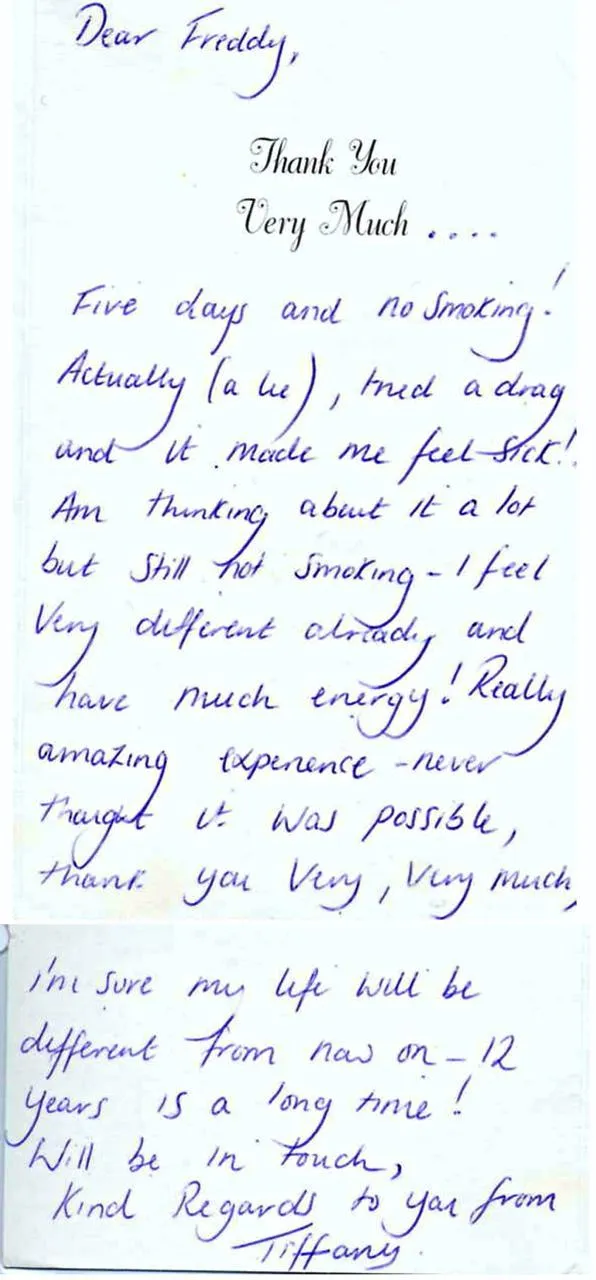 Dear Freddy,
Thank You
Very Much ....
Five days and no smoking!
Actually (a lie), tried a drag
and it made me feel sick!
Am thinking about it a lot
but still not smoking - I feel
Very different already and
have much energy! Really
amazing experience - never
thought it was possible,
thank you Very, Very much,
i'm sure my life will be
different from now on - 12
years is a long time!
Will be in touch,
Kind Regards to you from
Tiffany.